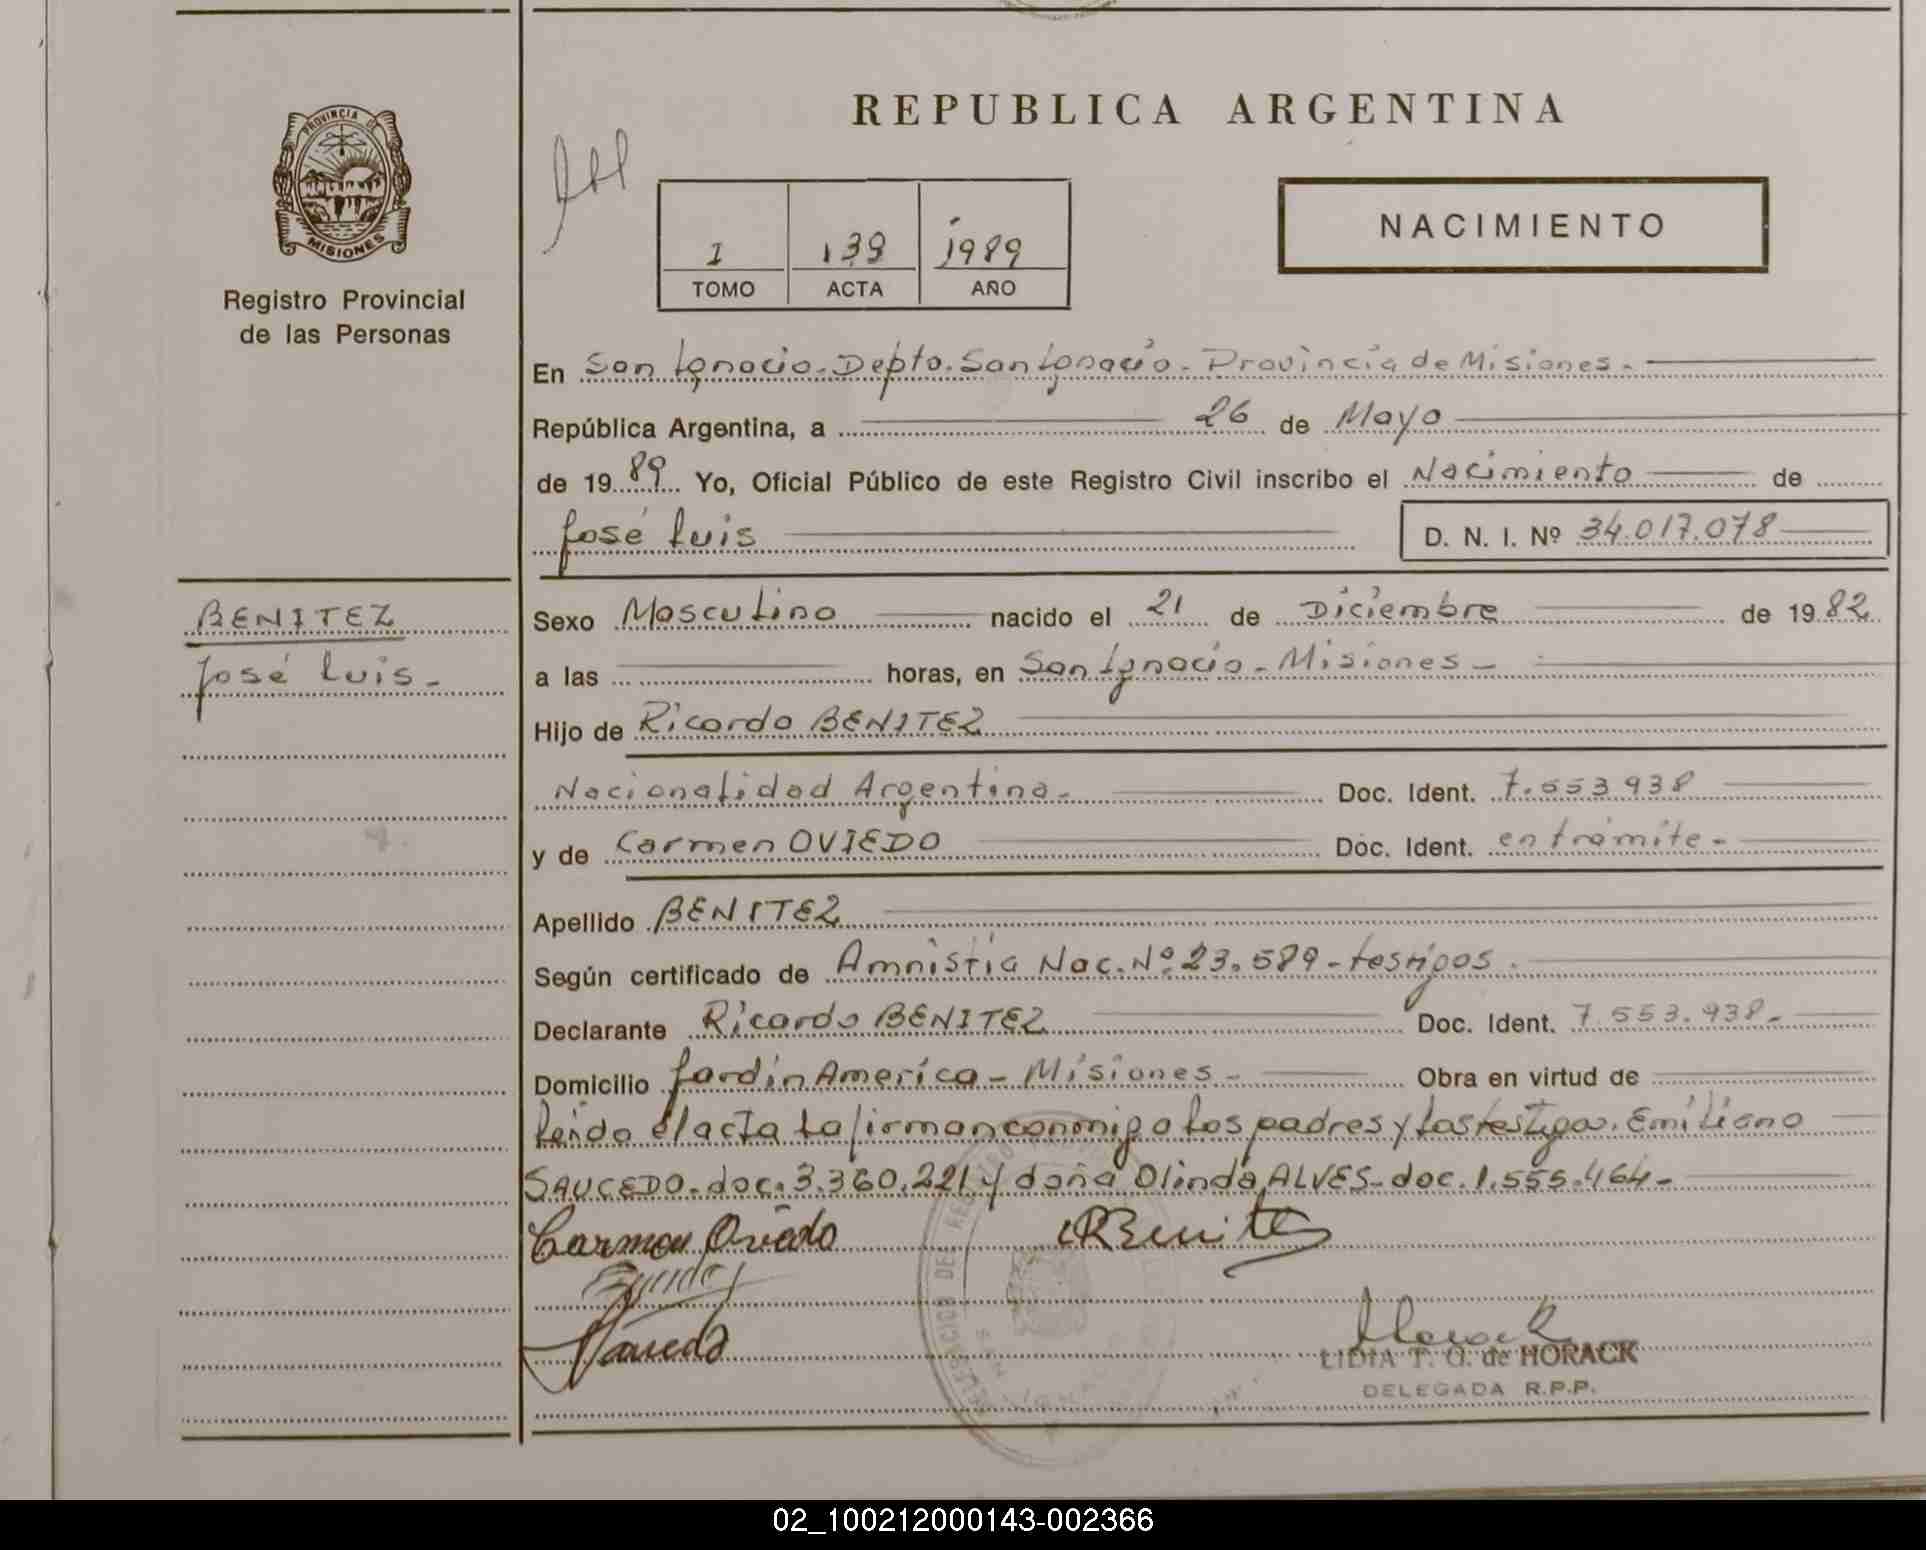 REPUBLICA ARGENTINA
PROVINCIA DE
MISIONES
Registro Provincial
de las Personas
I 139 1989
TOMO ACTA AÑO
NACIMIENTO
En San Ignacio. Depto. San Ignacio. Provincia de Misiones.
República Argentina, a 26 de Mayo
de 1989 Yo, Oficial Público de este Registro Civil inscribo el Nacimiento de
José Luis D. N. I. Nº 34.017.078
BENITEZ
José Luis.
Sexo Masculino nacido el 21 de Diciembre de 1982
a las horas, en San Ignacio - Misiones -
Hijo de Ricardo BENITEZ
Nacionalidad Argentina. Doc. Ident. 7.553.938
y de Carmen OVIEDO Doc. Ident. en trámite -
Apellido BENITEZ
Según certificado de Amnistia Nac. Nº 23.589 - testigos.
Declarante Ricardo BENITEZ Doc. Ident. 7.553.938-
Domicilio Jardín America - Misiones - Obra en virtud de
Leida el acta la firman conmigo los padres y los testigos. Emiliano
SAUCEDO. doc. 3.360.221 y doña Olinda ALVES - doc. 1.555.464 -
Carmen Oviedo RBenitez
Horack
LIDIA T. O. de HORACK
DELEGADA R.P.P.
02_100212000143-002366